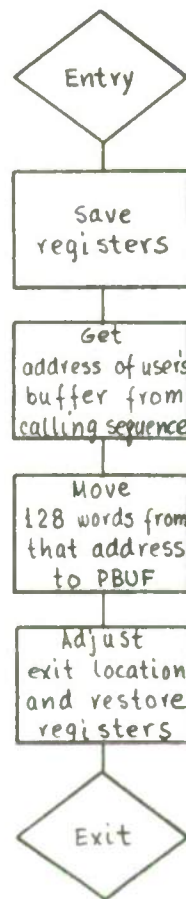 Entry
Save
registers
Get
address of user's
buffer from
calling sequence
Move
128 words from
that address
to PBUF
Adjust
exit location
and restore
registers
Exit